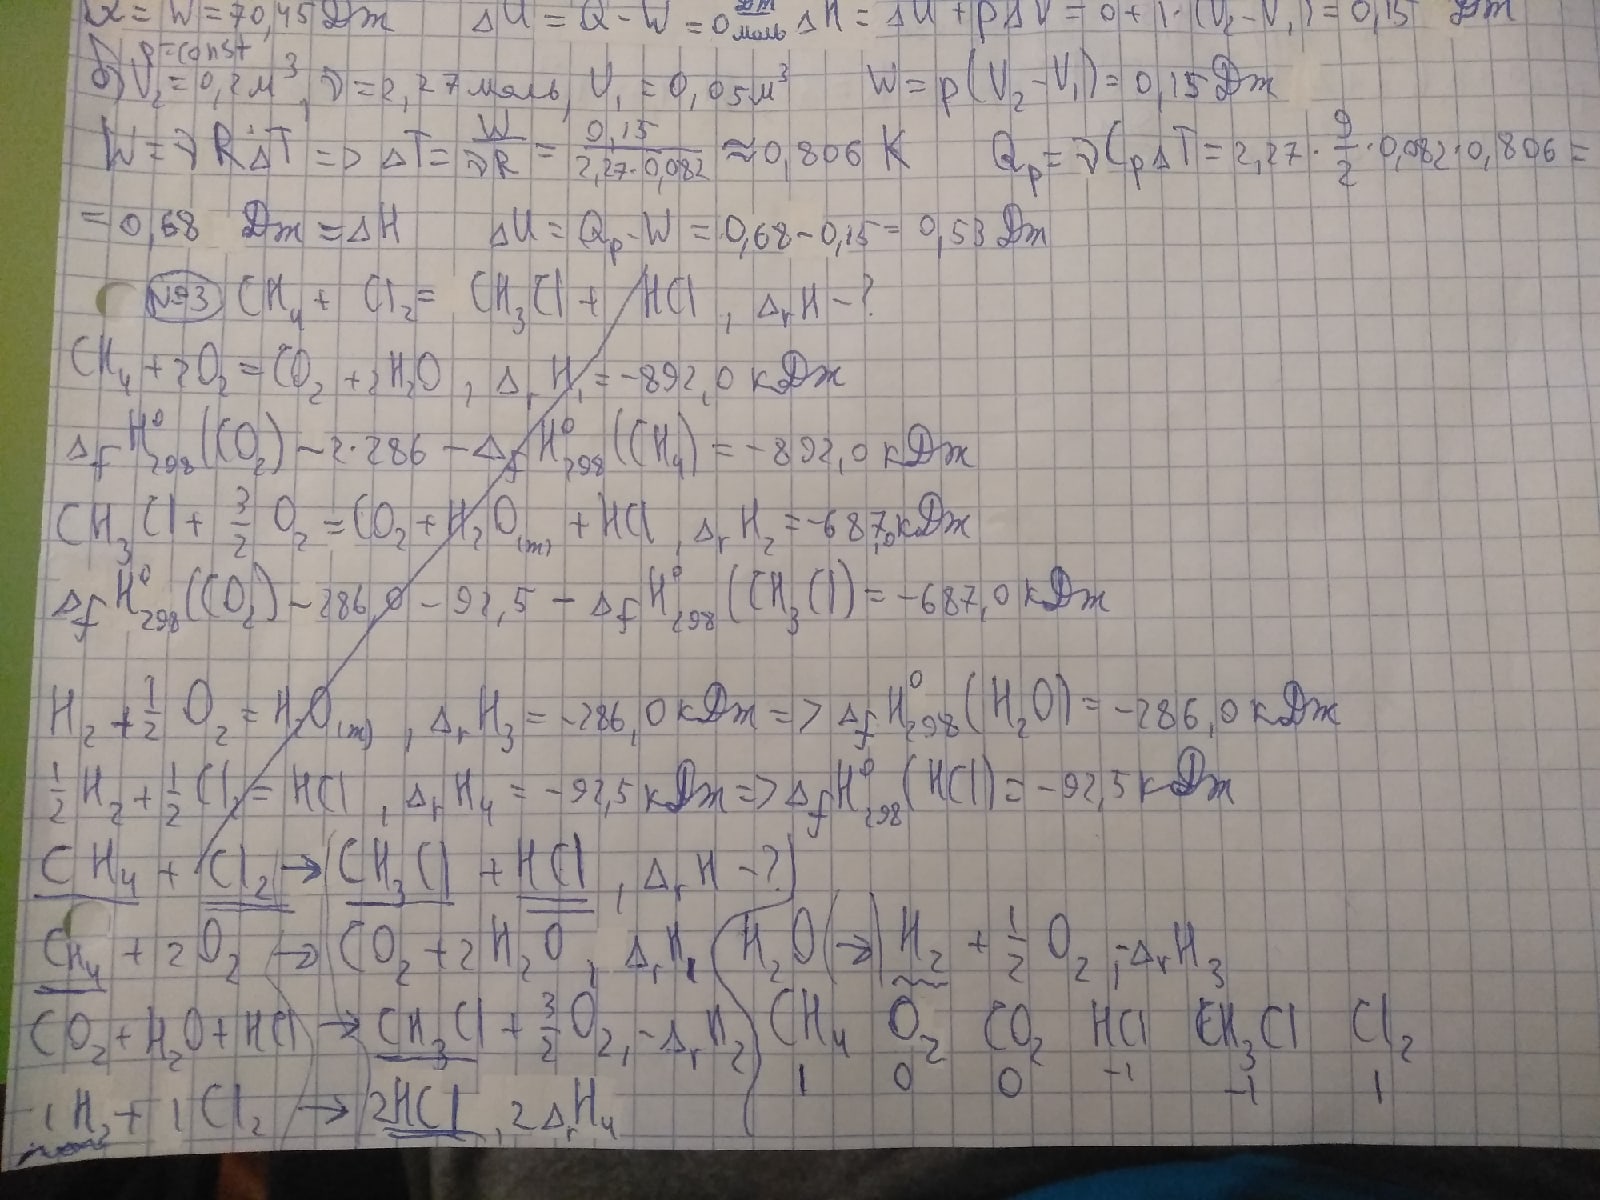 Q = W = 70,45 Дж ΔU = Q - W = 0 Дж/моль ΔH = ΔU + pΔV = 0 + 1·(V₂ - V₁) = 0,15 Дж
p = const
б) V₂ = 0,2 м³, ν = 2,27 моль, V₁ = 0,05 м³ W = p(V₂ - V₁) = 0,15 Дж
W = νRΔT => ΔT = W/νR = 0,15/2,27·0,082 ≈ 0,806 K Qp = νCpΔT = 2,27 · 9/2 · 0,082 · 0,806 =
= 0,68 Дж = ΔH ΔU = Qp - W = 0,68 - 0,15 = 0,53 Дж
№93 CH₄ + Cl₂ = CH₃Cl + HCl, ΔᵣH - ?
CH₄ + 2O₂ = CO₂ + 2H₂O, ΔᵣH₁ = -892,0 кДж
ΔfH⁰₂₉₈(CO₂) - 2·286 - ΔfH⁰₂₉₈(CH₄) = -892,0 кДж
CH₃Cl + 3/2 O₂ = CO₂ + H₂O(ж) + HCl, ΔᵣH₂ = -687,0 кДж
ΔfH⁰₂₉₈(CO₂) - 286,0 - 92,5 - ΔfH⁰₂₉₈(CH₃Cl) = -687,0 кДж
H₂ + 1/2 O₂ = H₂O(ж), ΔᵣH₃ = -286,0 кДж => ΔfH⁰₂₉₈(H₂O) = -286,0 кДж
1/2 H₂ + 1/2 Cl₂ = HCl, ΔᵣH₄ = -92,5 кДж => ΔfH⁰₂₉₈(HCl) = -92,5 кДж
CH₄ + Cl₂ → CH₃Cl + HCl, ΔᵣH - ?
CH₄ + 2O₂ → CO₂ + 2H₂O, ΔᵣH₁ H₂O → H₂ + 1/2 O₂, -ΔᵣH₃
CO₂ + H₂O + HCl → CH₃Cl + 3/2 O₂, -ΔᵣH₂ CH₄ O₂ CO₂ HCl CH₃Cl Cl₂
1 0 0 -1 -1 1
1H₂ + 1Cl₂ → 2HCl, 2ΔᵣH₄